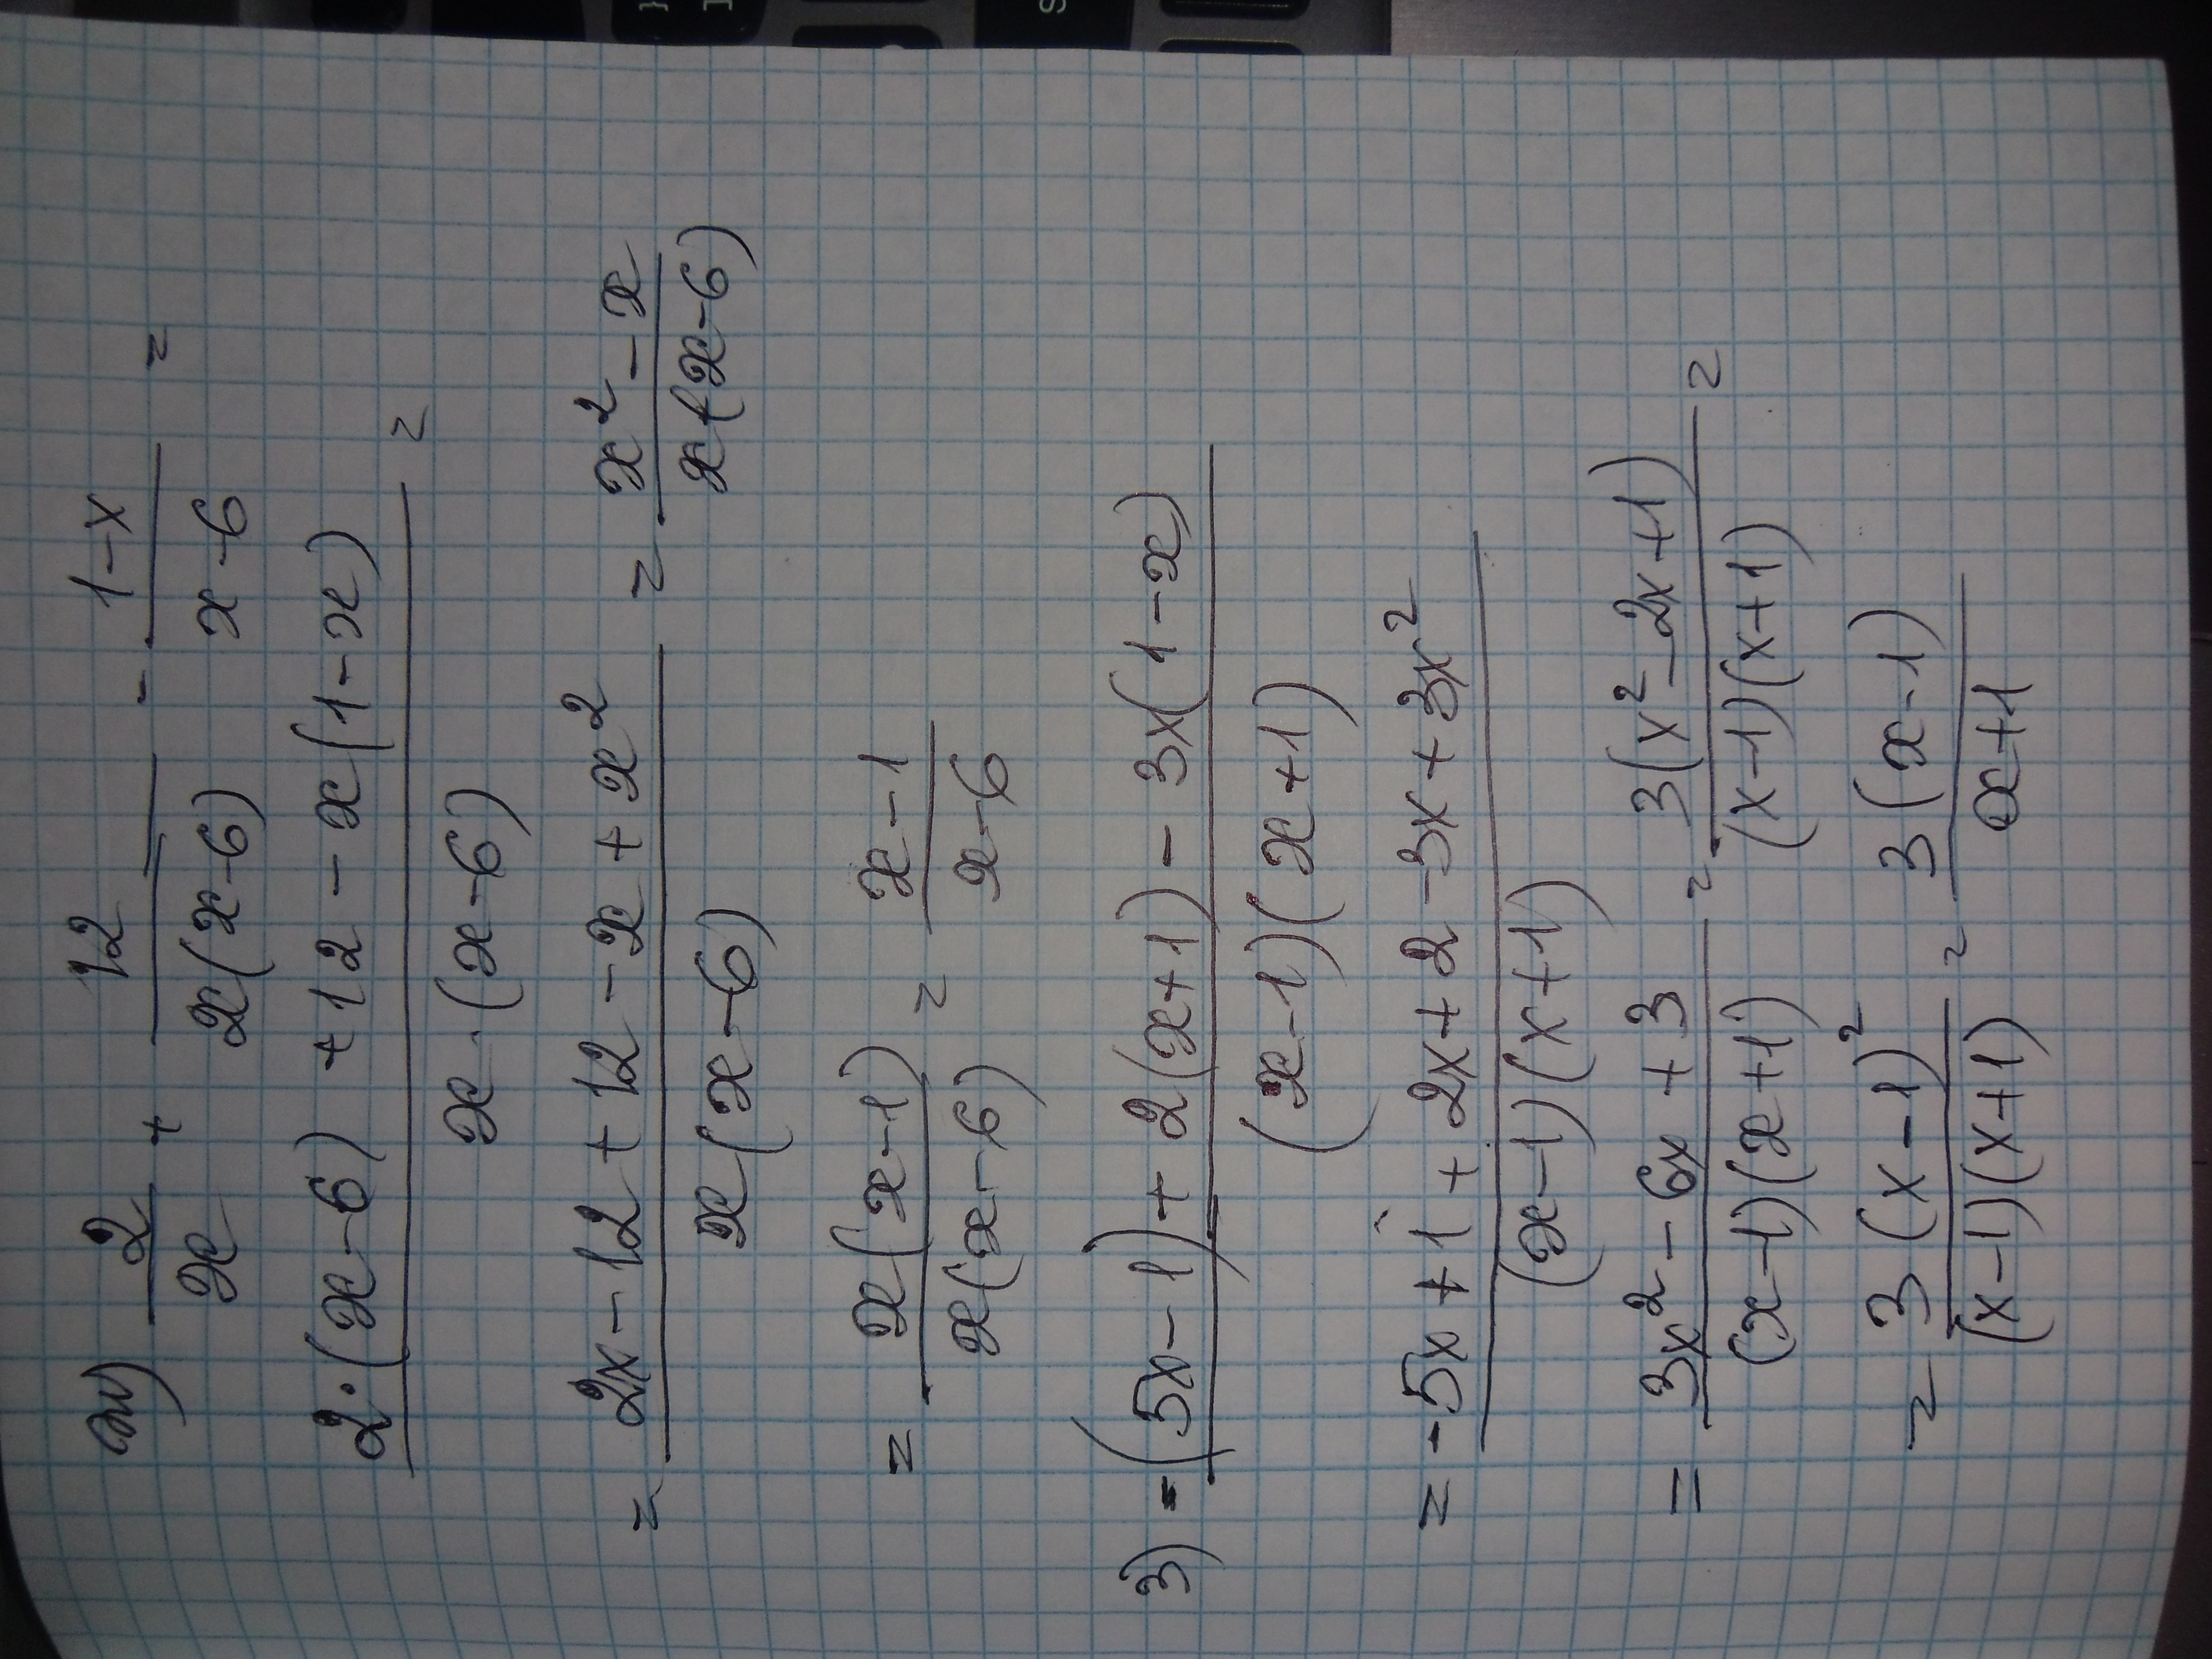 ж) 2/x + 12/x(x-6) - 1-x/x-6 =
2·(x-6) + 12 - x(1-x) / x·(x-6) =
= 2x-12+12-x+x² / x(x-6) = x²-x / x(x-6)
= x(x-1) / x(x-6) = x-1 / x-6
3) -(5x-1)+2(x+1)-3x(1-x) / (x-1)(x+1)
= -5x+1+2x+2-3x+3x² / (x-1)(x+1)
= 3x²-6x+3 / (x-1)(x+1) = 3(x²-2x+1) / (x-1)(x+1) =
= 3(x-1)² / (x-1)(x+1) = 3(x-1) / x+1